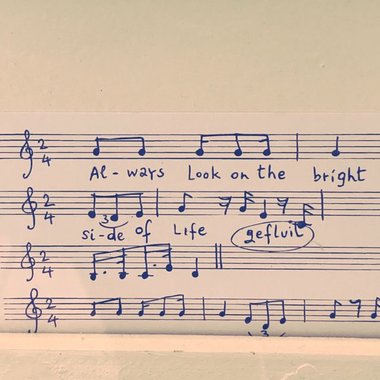 2
4
Al-ways Look on the bright
2
4
3
si-de of Life gefluit
2
4
2
4
3